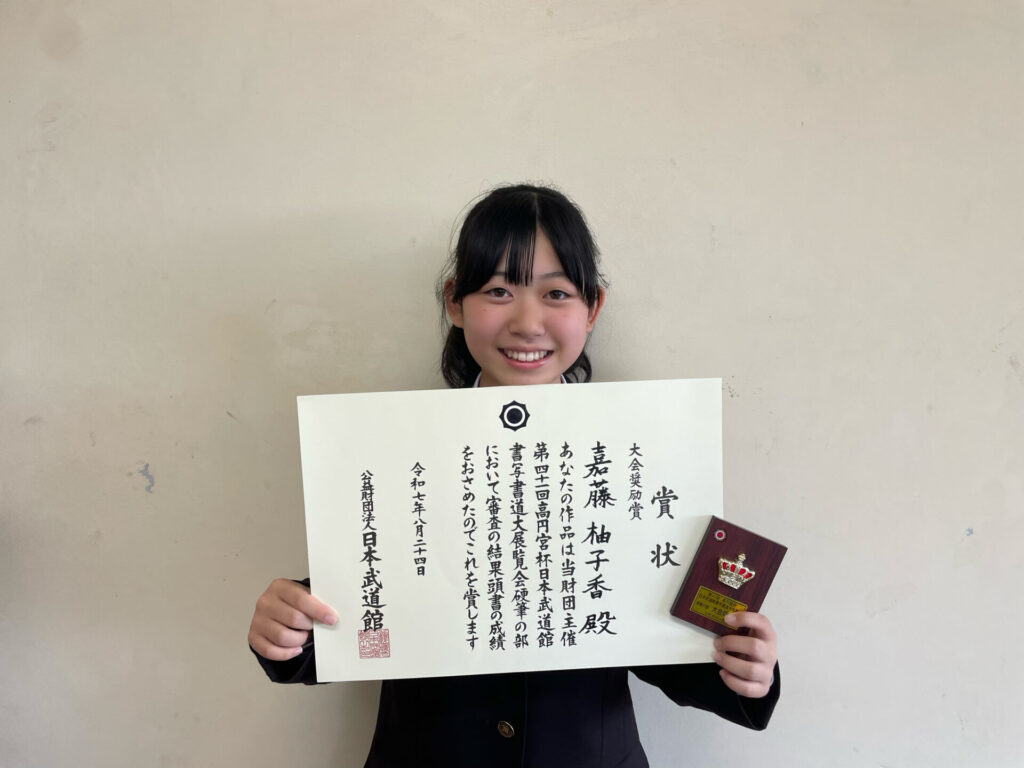 賞状
大会奨励賞
嘉藤柚子香殿
あなたの作品は当財団主催
第四十一回高円宮杯日本武道館
書写書道大展覧会硬筆の部
において審査の結果頭書の成績
をおさめたのでこれを賞します
令和七年八月二十四日
公益財団法人日本武道館